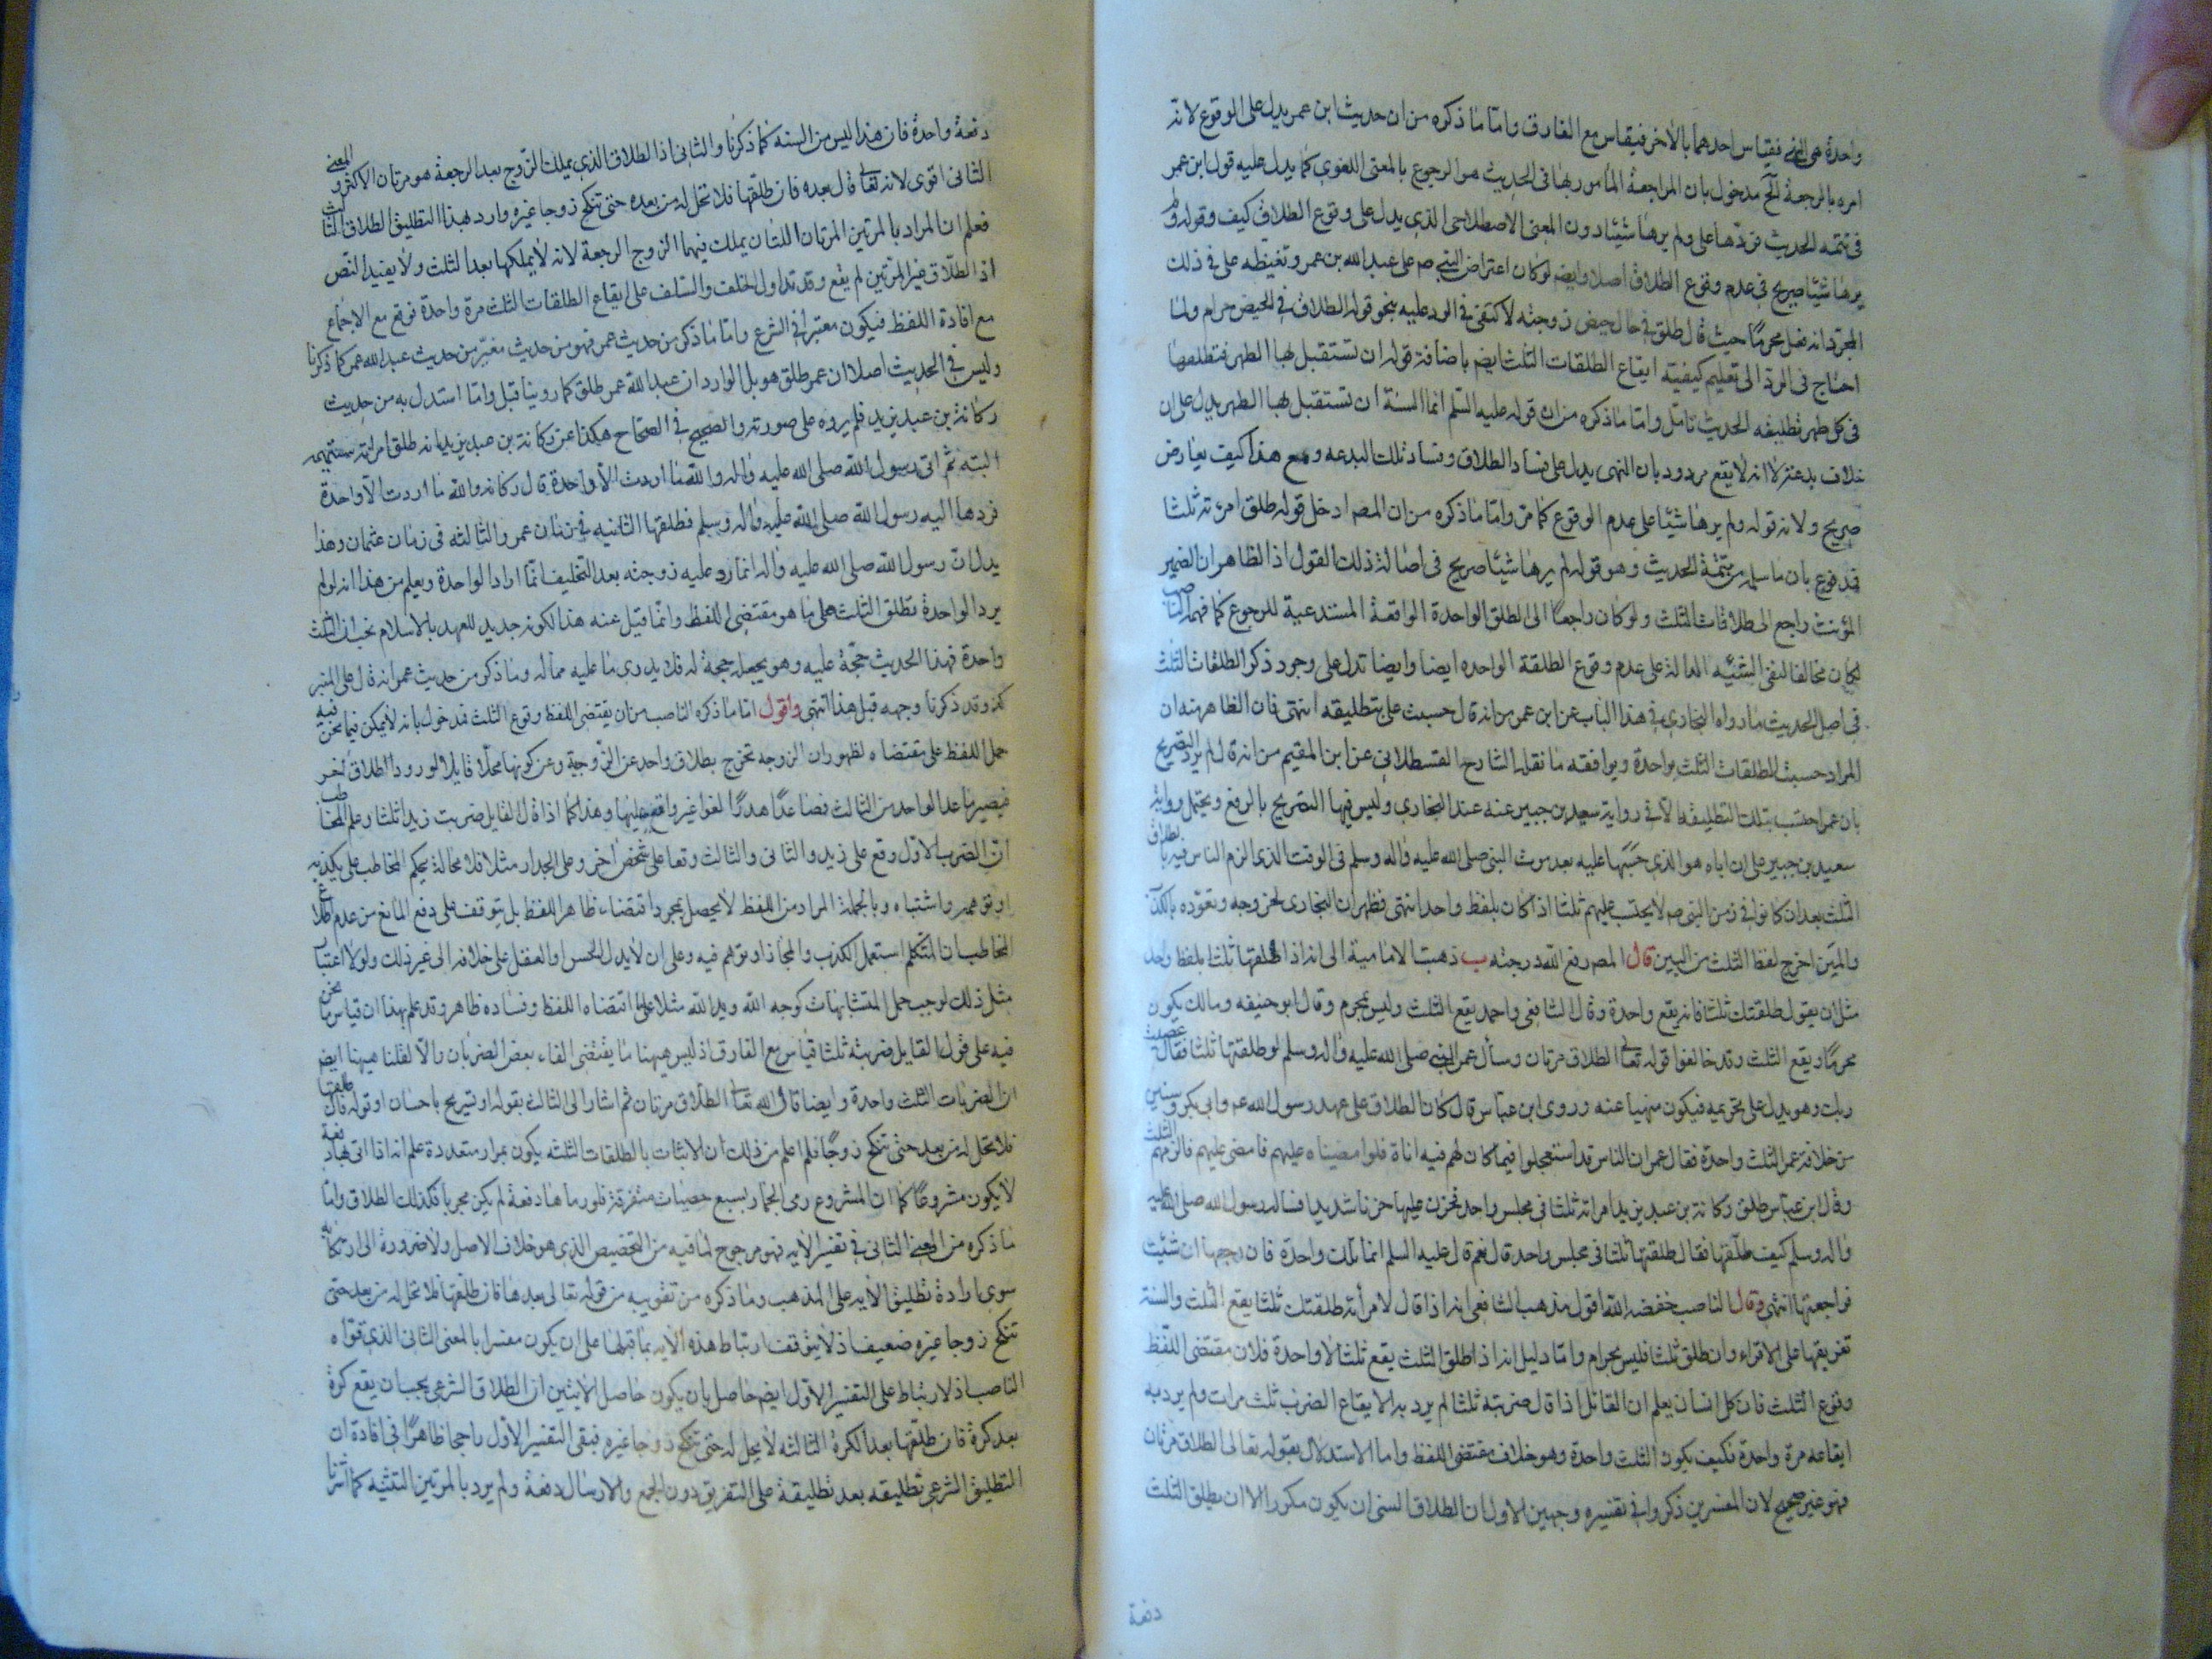 واحدة هى النهى فقياس احدهما بالاخر فيقاس مع الفارق واما ما ذكره من ان حديث ابن عمر يدل على الوقوع لانه
امره بالرجعة آلخ مدخول بان المراجعة المأمور بها فى الحديث هو الرجوع بالمعنى اللغوي كما يدل عليه قول ابن عمر
فى تتمه الحديث فردها على ولم يرها شيئا دون المعنى الاصطلاحى الذى يدل على وقوع الطلاق كيف وقوله ولم
يرها شيئا صريح فى عدم وقوع الطلاق اصلا وايضم لو كان اعتراض النبى صم على عبد الله بن عمر وتغيظه على فى ذلك
المجرد انه فعل محرمًا حيث قال طلق فى حال حيض زوجته لاكتفى فى الرد عليه بنحو قوله الطلاق فى الحيض حرام ولما
احتاج فى الرد الى تعليم كيفيته ايقاع الطلقات الثلث ايضم باضافة قوله ان تستقبل بها الطهر فتطلقها
فى كل طهر تطليقه الحديث تامل واما ما ذكره من ان قوله عليه السلم انما السنة ان تستقبل بها الطهر يدل على ان
خلاف بدعته لا انه لا يقع مردود بان النهى يدل على فساد الطلاق وفساد تلك البدعه ومع هذا كيف يعارض
صريح ولانه قوله ولم يرها شيئا على عدم الوقوع كما مر واما ما ذكره من ان المصم ادخل قوله طلق امرئته ثلثا
فمدفوع بان ما سلمه من تتمة الحديث وهو قوله لم يرها شيئا صريح فى اصالة ذلك القول اذ الظاهر ان الضمير
المؤنث راجع الى طلاقات الثلث ولو كان راجعًا الى الطلق الواحدة الواقعة المستدعية للرجوع كما فهمه الناصب
لكان مخالفا لنفى الشيئيه الدالة على عدم وقوع الطلقة الواحده ايضا وايضا تدل على وجود ذكر الطلقات الثلث
فى اصل الحديث ما رواه البخارى فى هذا الباب عن ابن عمر من انه قال حسبت على بتطليقه انتهى فان الظاهر منه ان
المراد حسبت الطلقات الثلث بواحدة ويوافقه ما نقله الشارح القسطلانى عن ابن المقيم من انه قال لم يرد التصريح
بان عمر احتسب بتلك التطليقة الا فى رواية سعيد بن جبير عنه عند البخارى وليس فيها التصريح بالرفع ويحتمل رواية
سعيد بن جبير على ان اباه هو الذى حسبها عليه بعد موت النبى صلى الله عليه واله وسلم فى الوقت الذى الزم الناس فيه بالطلاق
الثلث بعد ان كانوا فى زمن النبى صم لا يحتسب عليهم ثلثا اذا كان بلفظ واحد انتهى فظهر ان البخارى لخروجه وتعوّده بالكذب
والمين اخرج لفظ الثلث من البين قال المصم رفع الله درجته ب ذهبت الامامية الى انه اذا طلقها ثلثا بلفظ واحد
مثل ان يقول طلقتك ثلثا فانه يقع واحدة وقال الشافعى واحمد يقع الثلث وليس بمحرم وقال ابو حنيفه ومالك يكون
محرمًا ويقع الثلث وقد خالفوا قوله تعالى الطلاق مرتان وسأل عمر النبى صلى الله عليه واله وسلم لو طلقتها ثلثا فقال عصيت
ربك وهو يدل على تحريمه فيكون منهيا عنه وروى ابن عباس قال كان الطلاق على عهد رسول الله عم وابى بكر وسنين
من خلافة عمر الثلث واحدة فقال عمر ان الناس قد استعجلوا فيما كان لهم فيه اناة فلو امضيناه عليهم فامضى عليهم فالزمهم الثلث
وقال ابن عباس طلق ركانة بن عبد يزيد امراته ثلثا فى مجلس واحد فحزن عليها حزنا شديدا فساله رسول الله صلى الله عليه
واله وسلم كيف طلقتها فقال طلقتها ثلثا فى مجلس واحد قال نعم قال عليه السلم انما تلك واحدة فان رجعها ان شئت
فراجعتها انتهى وقال الناصب خفضه الله اقول مذهب الشافعى انه اذا قال لامرأته طلقتك ثلثا يقع الثلث والسنة
تفريقها على الاقراء وان طلق ثلثا فليس بحرام واما دليل انه اذا طلق الثلث يقع ثلثا لا واحدة فلان مقتضى اللفظ
وقوع الثلث فان كل انسان يعلم ان القائل اذا قال ضربته ثلثا لم يرد به الا يقاع الضرب ثلث مرات ولم يرد به
ايقاعه مرة واحدة فكيف يكون الثلث واحدة وهو خلاف مقتضى اللفظ واما الاستدلال بقوله تعالى الطلاق مرتان
فهو غير صحيح لان المفسرين ذكروا فى تفسيره وجهين الاول ان الطلاق السنى ان يكون مكررا لا ان يطلق الثلث
دفعة
دفعة واحدة فان هذا ليس من السنه كما ذكرنا والثانى اذ الطلاق الذى يملك الزوج بعد الرجعة هو مرتان لا اكثر والمعنى
الثانى اقوى لانه تعالى قال بعده فان طلقها فلا تحل له من بعده حتى تنكح زوجا غيره واراد بهذا التطليق الطلاق الثالث
فعلم ان المراد بالمرتين المرتان اللتان يملك فيهما الزوج الرجعة لانه لا يملكها بعد الثلث ولا يفيد النص
اذ الطلاق غير المرتين لم يقع وقد تداول الخلف والسلف على ايقاع الطلقات الثلث مرة واحدة فوقع مع الاجماع
مع افادة اللفظ فيكون معتبرا فى الشرع واما ما ذكر من حديث عمر فهو من حديث مغيّر من حديث عبد الله عمر كما ذكرنا
وليس فى الحديث اصلا ان عمر طلق هو بل الوارد ان عبد الله عمر طلق كما روينا قبل واما استدل به من حديث
ركانة بن عبد يزيد فلم يروه على صورته والصحيح فى الصحاح هكذا عن ركانة بن عبد يزيد انه طلق امرئته سهيمه
البته ثم اتى رسول الله صلى الله عليه واله والله ما اردت الا واحدة قال ركانه والله ما اردت الا واحدة
فردها اليه رسول الله صلى الله عليه واله وسلم فطلقها الثانيه فى زمان عمر والثالثه فى زمان عثمان وهذا
يدل ان رسول الله صلى الله عليه واله انما رد عليه زوجته بعد التحليف انما اراد الواحدة ويعلم من هذا انه لو لم
يرد الواحدة تطلق الثلث على ما هو مقتضى اللفظ وانما قيل عنه هذا لكونه جديد للعهد بالاسلام بحسبان الثلث
واحدة فهذا الحديث حجة عليه وهو يجعله حجة له فلا يدرى ما عليه مما له وما ذكر من حديث عمر انه قال على المنبر
كذ وقد ذكرنا وجهه قبل هذا انتهى واقول اما ما ذكره الناصب من ان يقتضى اللفظ وقوع الثلث فمدخول بانه لا يمكن فيما نحن فيه
حمل اللفظ على مقتضاه لظهور ان الزوجه تخرج بطلاق واحد عن الزوجية وعن كونها محلا قابلا لورود الطلاق اخر
فيصير ما عدا الواحد من الثالث فصاعدًا هدرًا لغوا غير واقع عليها وهذا كما اذا قال القايل ضربت زيدا ثلثا وعلم المخاطب
ان الضرب الاول وقع على زيد والثانى والثالث وقعا على شخص اخر وعلى الجدار مثلا فلا محالة يحكم المخاطب على بكذبه
او توهمه واشتباه وبالجملة المراد من اللفظ لا يحصل بمجرد اقتضاء ظاهر اللفظ بل يتوقف على دفع المانع من عدم اطلاع
المخاطب ان المتكلم استعمل الكذب والمجاز او توهم فيه وعلى ان لا يدل الحس او العقل على خلافه الى غير ذلك ولولا اعتبار
مثل ذلك لوجب حمل المتشابهات كوجه الله ويد الله مثلا على اقتضاه اللفظ وفساده ظاهر وقد علم بهذا ان قياس ما نحن
فيه على قول القايل ضربته ثلثا قياس مع الفارق اذ ليس ههنا ما يقتضى الغاء بعض الضربات والا لقلنا ههنا ايضم
ان الضربات الثلث واحدة وايضا قال الله تعالى الطلاق مرتان ثم اشار الى الثالث بقوله او تسريح باحسان او قوله فان طلقها
فلا تحل له من بعد حتى تنكح زوجًا فلم اعلم من ذلك ان الاثبات بالطلقات الثلثه يكون بمرار متعددة علم انه اذا اتى بها دفعة
لا يكون مشروعًا كما ان المشروع رمى الجمار بسبع حصيات متفرقة فلو رماها دفعة لم يكن مجزيا فكذلك الطلاق واما
ما ذكره من المعنى الثانى فى تفسير الآيه فهو مرجوح لما فيه من التخصيص الذى هو خلاف الاصل ولا ضرورة الى ارتكابه
سوى ارادة تطبيق الآيه على المذهب وما ذكره من تقويه من قوله تعالى بعدها فان طلقها فلا تحل له من بعد حتى
تنكح زوجا غيره ضعيف اذ لا يتوقف ارتباط هذه الآيه بما قبلها على ان يكون مفسرا بالمعنى الثانى الذى قوّاه
الناصب اذ لارتباط على التفسير الاول ايضم حاصل بان يكون حاصل الآيتين ان الطلاق الشرعى يجب ان يقع كرة
بعد كرة فان طلقها بعد الكرة الثالثه لا يحل له حتى تنكح زوجا غيره فبقى التفسير الاول راجحا ظاهرًا فى افادة ان
التطليق الشرعى تطليقه بعد تطليقة على التفريق دون الجمع والارسال دفعة ولم يرد بالمرتين التثنيه كما اشرنا